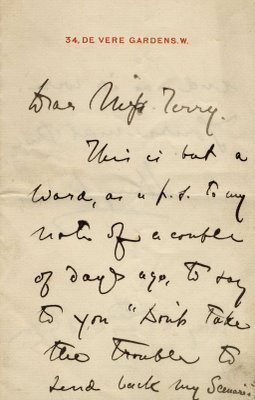 34, DE VERE GARDENS. W.
Dear Miss Terry.
This is but a
word, as a p.s. to my
note of a couple
of days ago, to say
to you "Don't take
the trouble to
send back my Scenario"